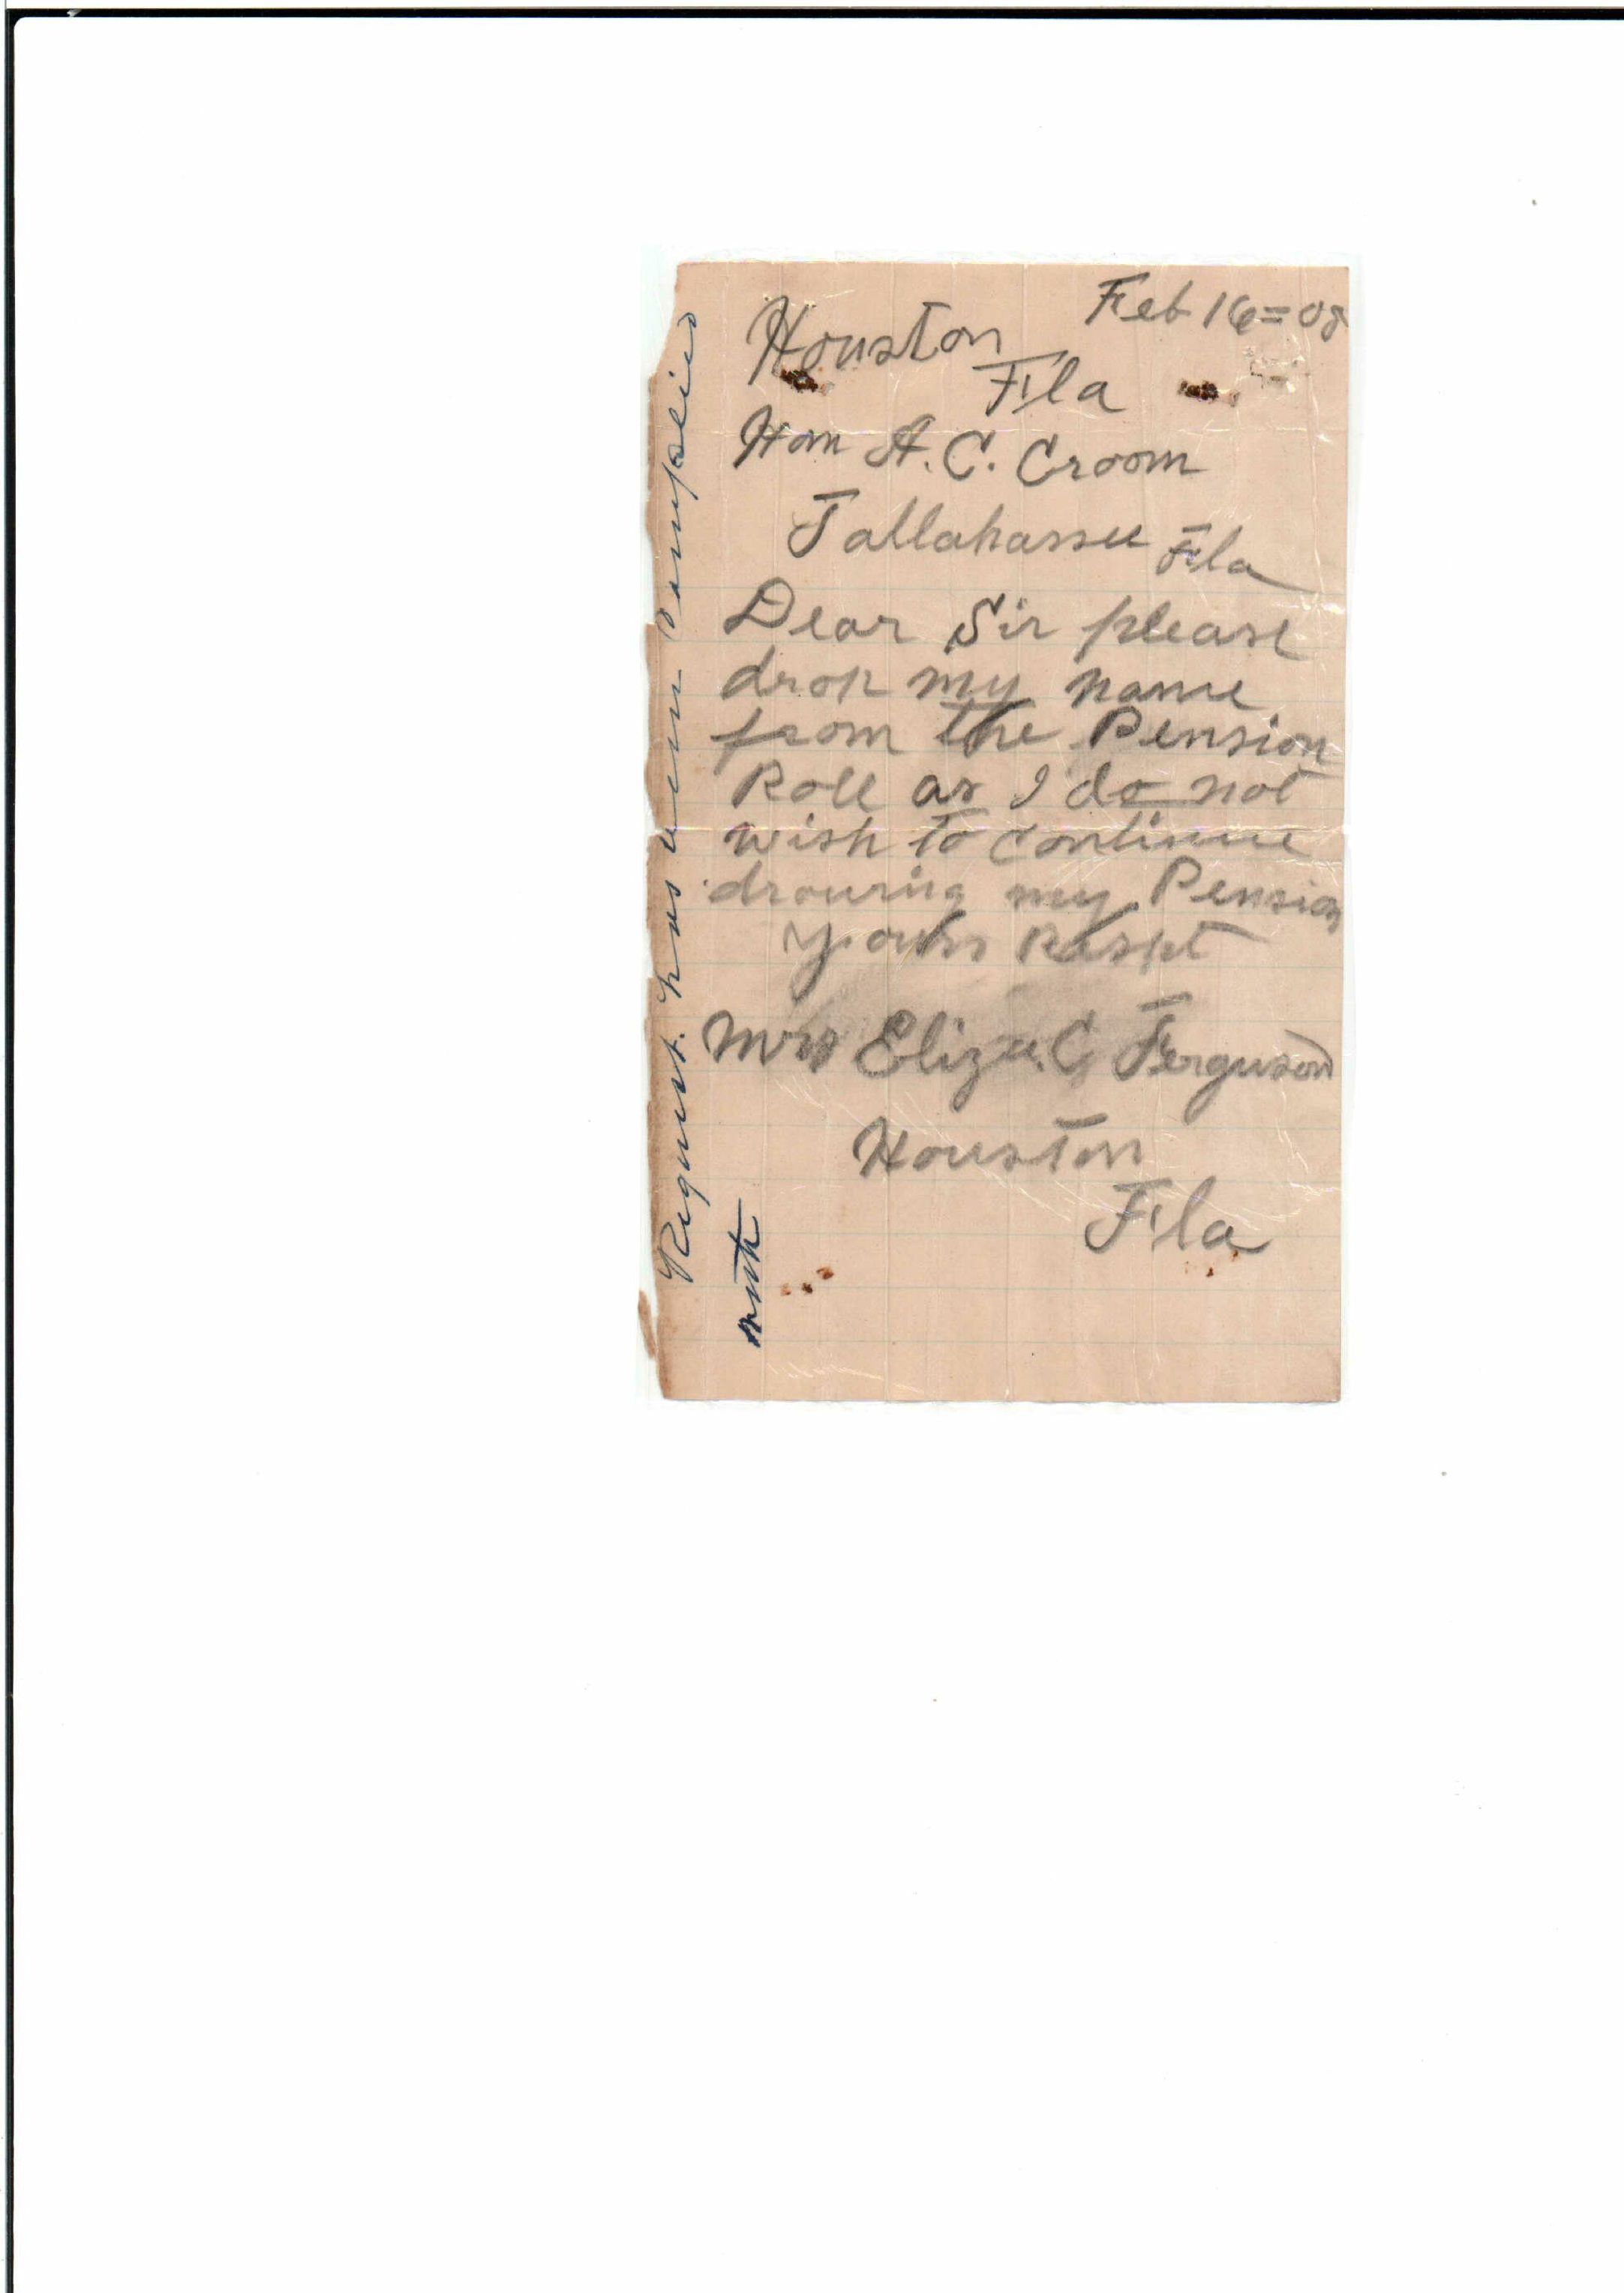 Feb 16=08
Houston
Fla
Hon A. C. Croom
Tallahassee Fla
Dear Sir please
drop my name
from the Pension
Roll as I do not
wish to continue
drawing my Pension
Yours Respt
Mrs Eliza. C Ferguson
Houston
Fla
Request has been complied
with